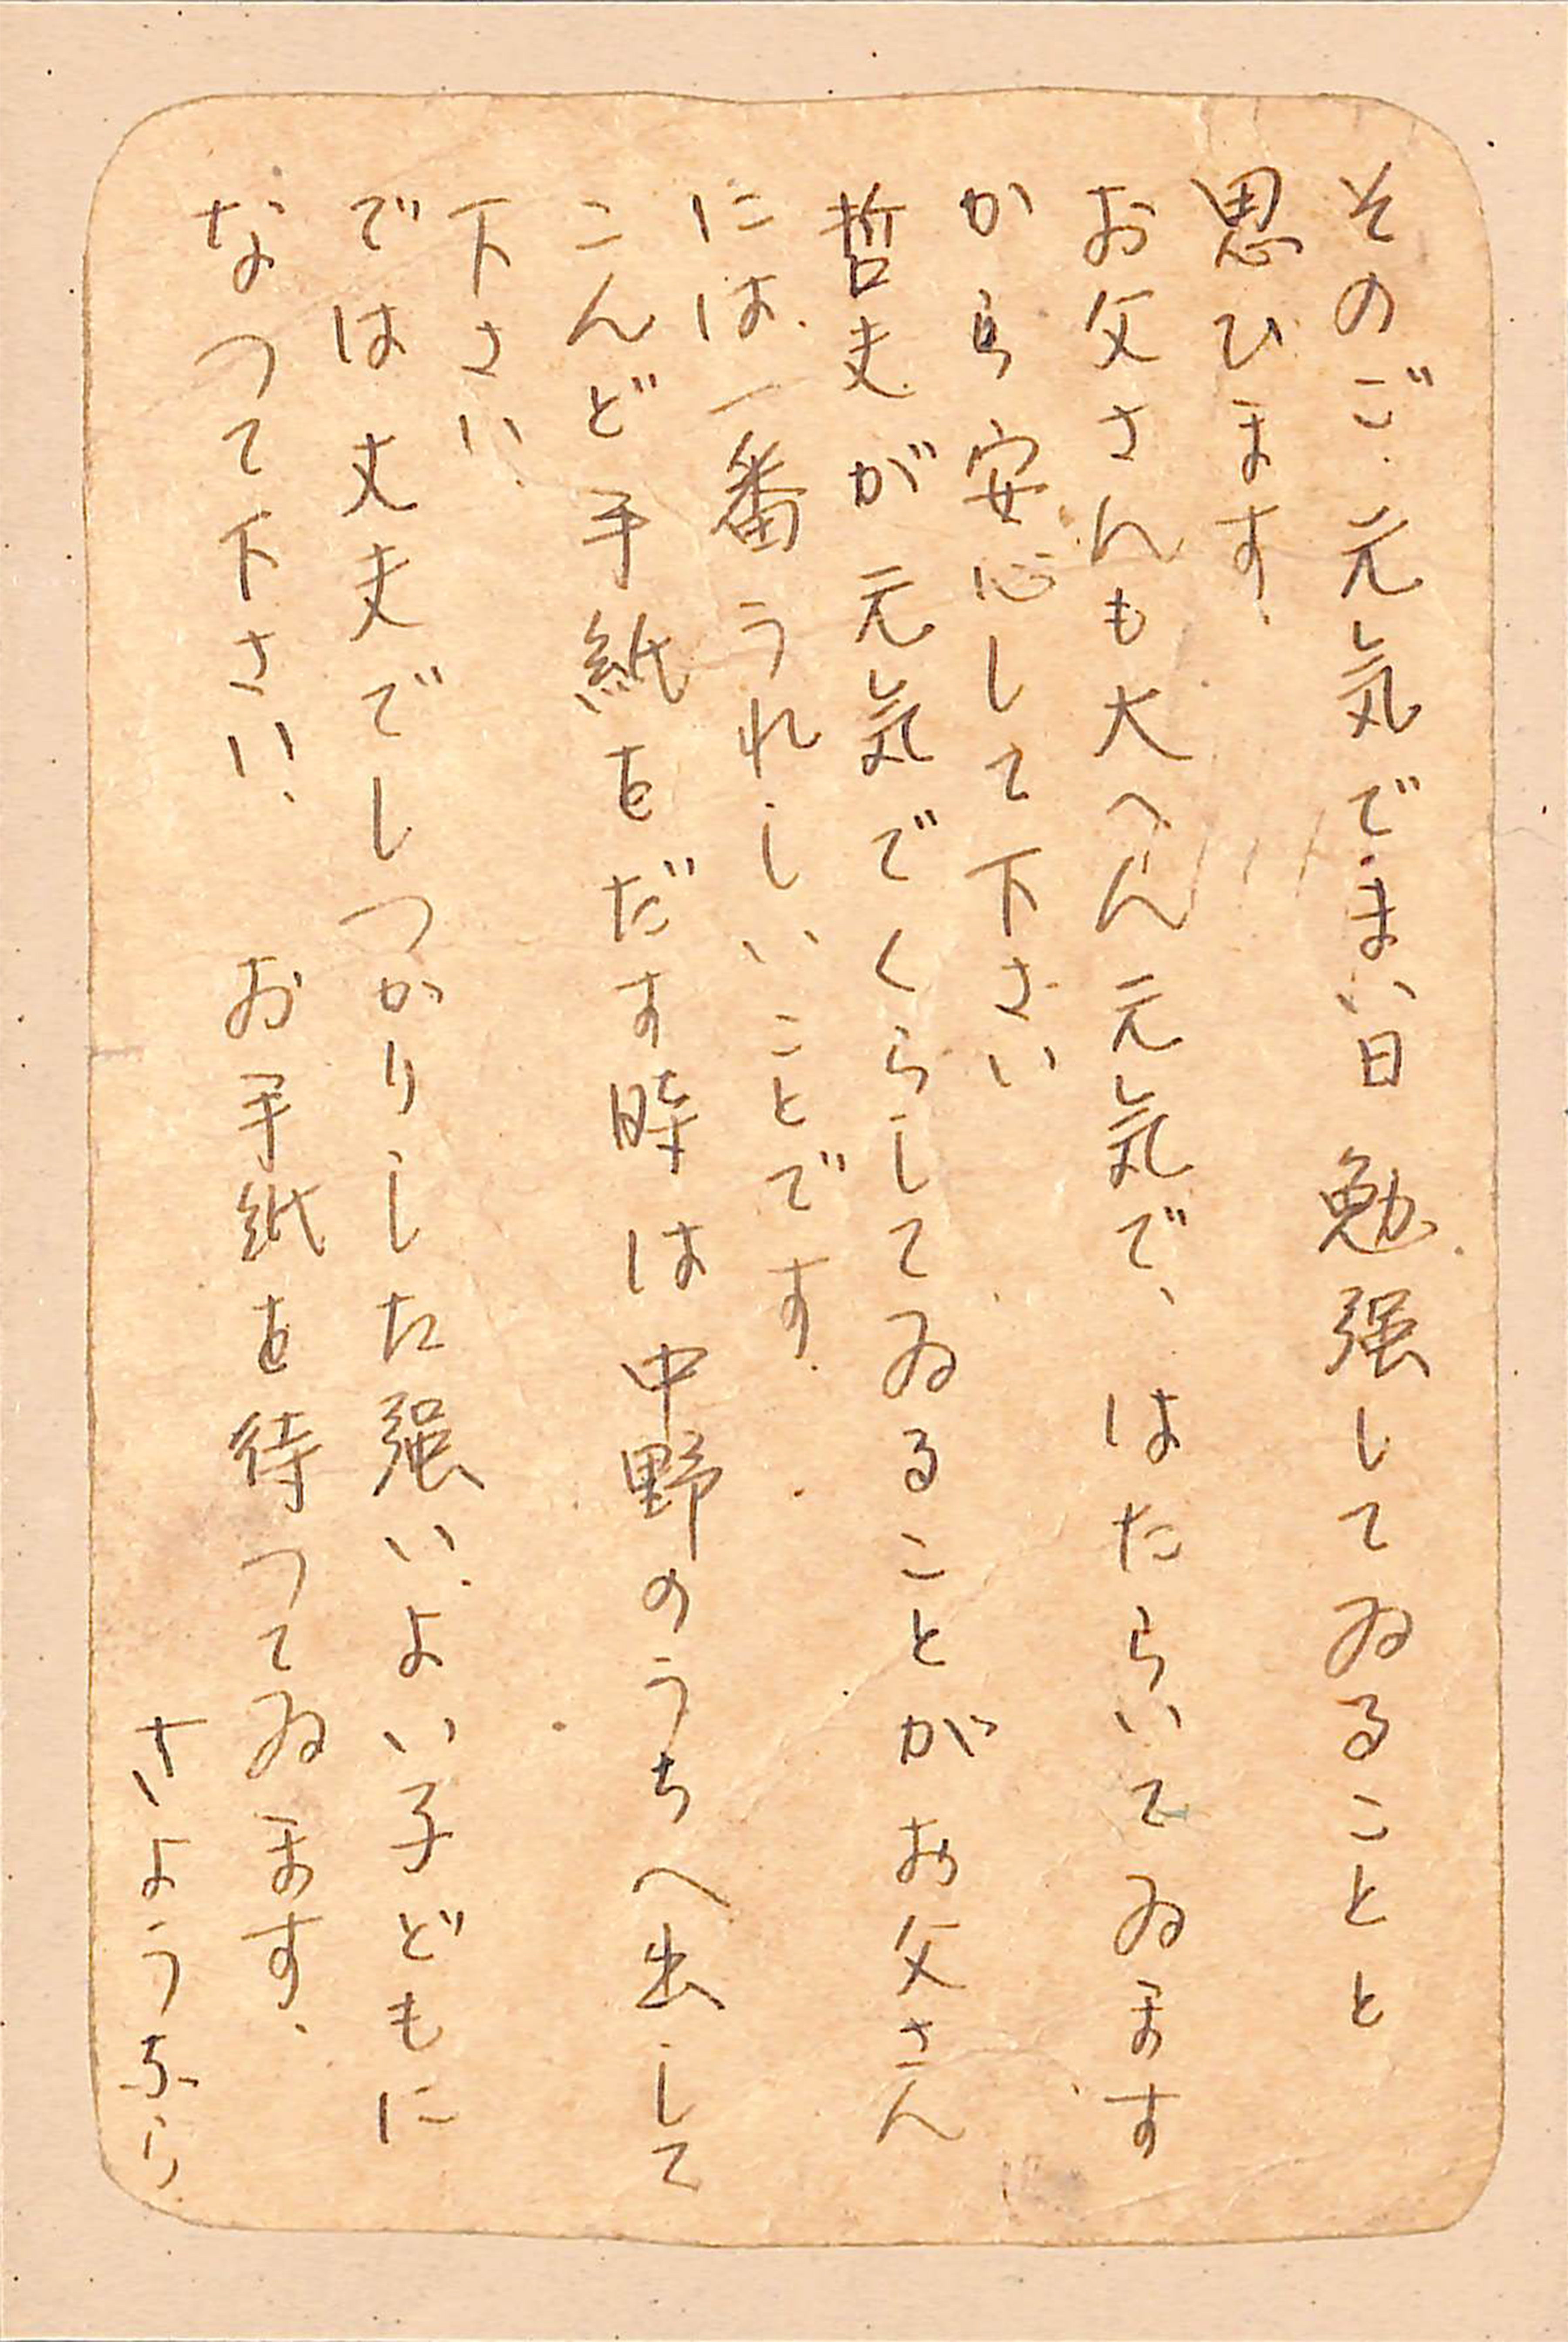 そのご元気でまい日勉强してゐることと
思ひます.
お父さんも大へん元気で、はたらいてゐます
から安心して下さい
哲夫が元気でくらしてゐることがお父さん
には一番うれしいことです.
こんど手紙をだす時は中野のうちへ出して
下さい.
では丈夫でしつかりした强いよい子どもに
なつて下さい. お手紙を待つてゐます.
さようなら